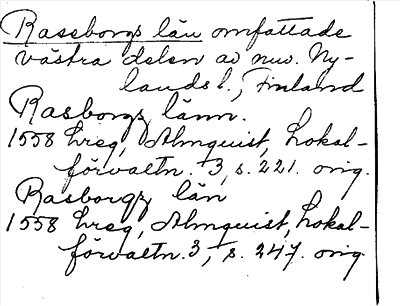 Raseborgs län omfattade
västra delen av nuv. Ny-
lands l., Finland
Rasborgs länn.
1558 Lreg, Almquist, Lokal-
förvaltn. 3, s. 221. orig.
Rasborgz län
1558 Lreg, Almquist, Lokal-
förvaltn. 3, s. 247. orig